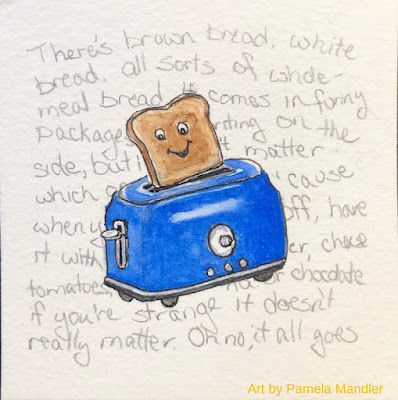 There's brown bread, white
bread, all sorts of whole-
meal bread. It comes in funny
packages on the
side, but matter
which cause
when off, have
it with cheese
tomatoes, or chocolate
if you're strange it doesn't
really matter. Oh no, it all goes
Art by Pamela Mandler